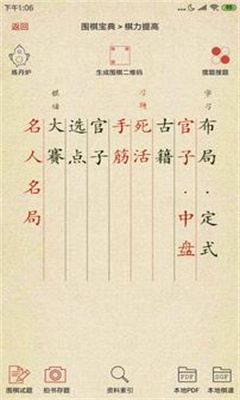 下午1:06
返回
围棋宝典 > 棋力提高
炼丹炉
生成围棋二维码
搜题
学习
布局·定式
官子·中盘
古籍
习题
死活
手筋
官子
选点
棋谱
大賽
名人名局
围棋试题
拍书存题
资料索引
PDF
本地PDF
SGF
本地棋谱